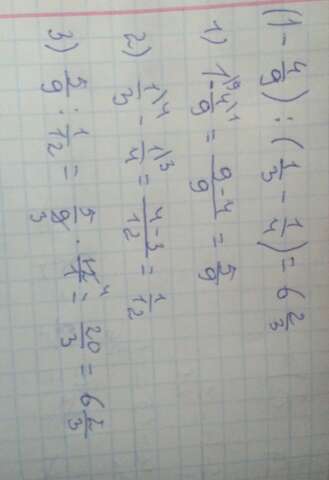 (1 - 4/9) : (1/3 - 1/4) = 6 2/3
1) 1\9 - 4\1/9 = 9-4/9 = 5/9
2) 1\4/3 - 1\3/4 = 4-3/12 = 1/12
3) 5/9 : 1/12 = 5/9 3 · 12 4/1 = 20/3 = 6 2/3